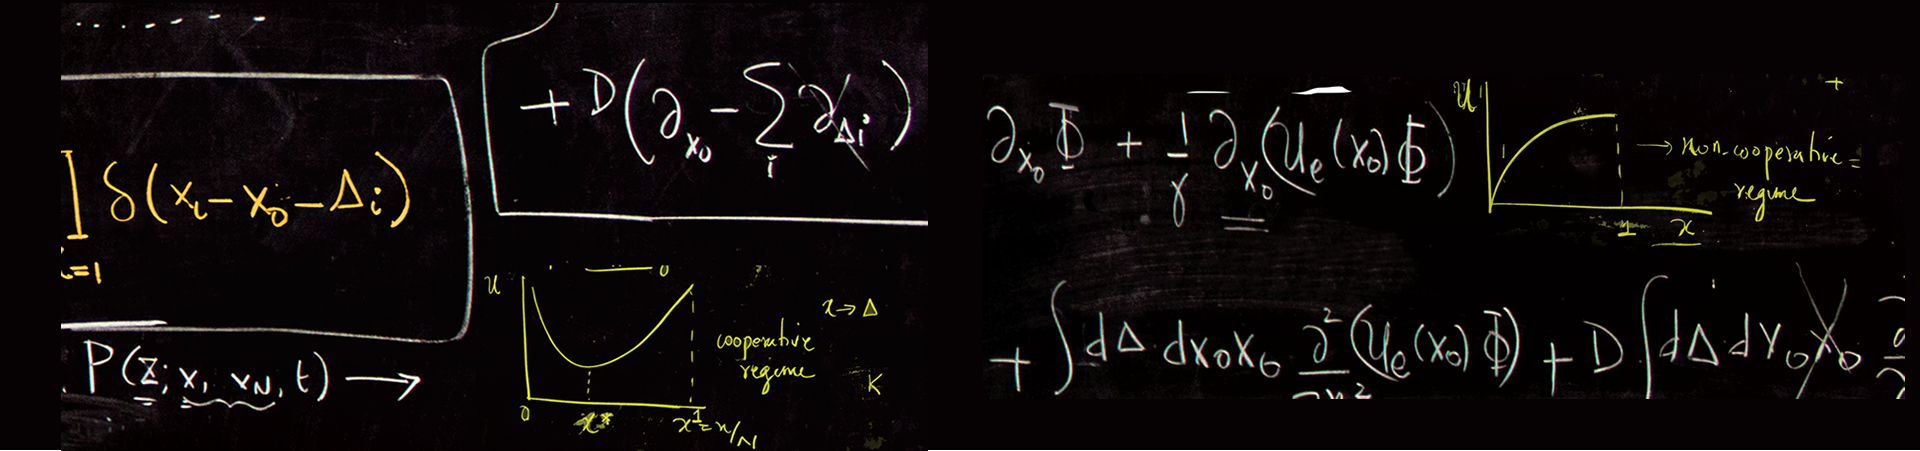 + D(∂x₀ − Σᵢ ∂Δi)
] δ(xᵢ − x₀ − Δi)
i=1
P(z; x, x_N, t) →
u
0
x*
x 1 = n/N
cooperative
regime
x → Δ
K
∂x₀ Φ + 1/γ ∂x₀(U_e(x₀) Φ)
U
1
x
→ non-cooperative =
regime
+
+ ∫ dΔ dx₀ x₀ ∂²/∂x² (U_e(x₀) Φ) + D ∫ dΔ dx₀ x₀